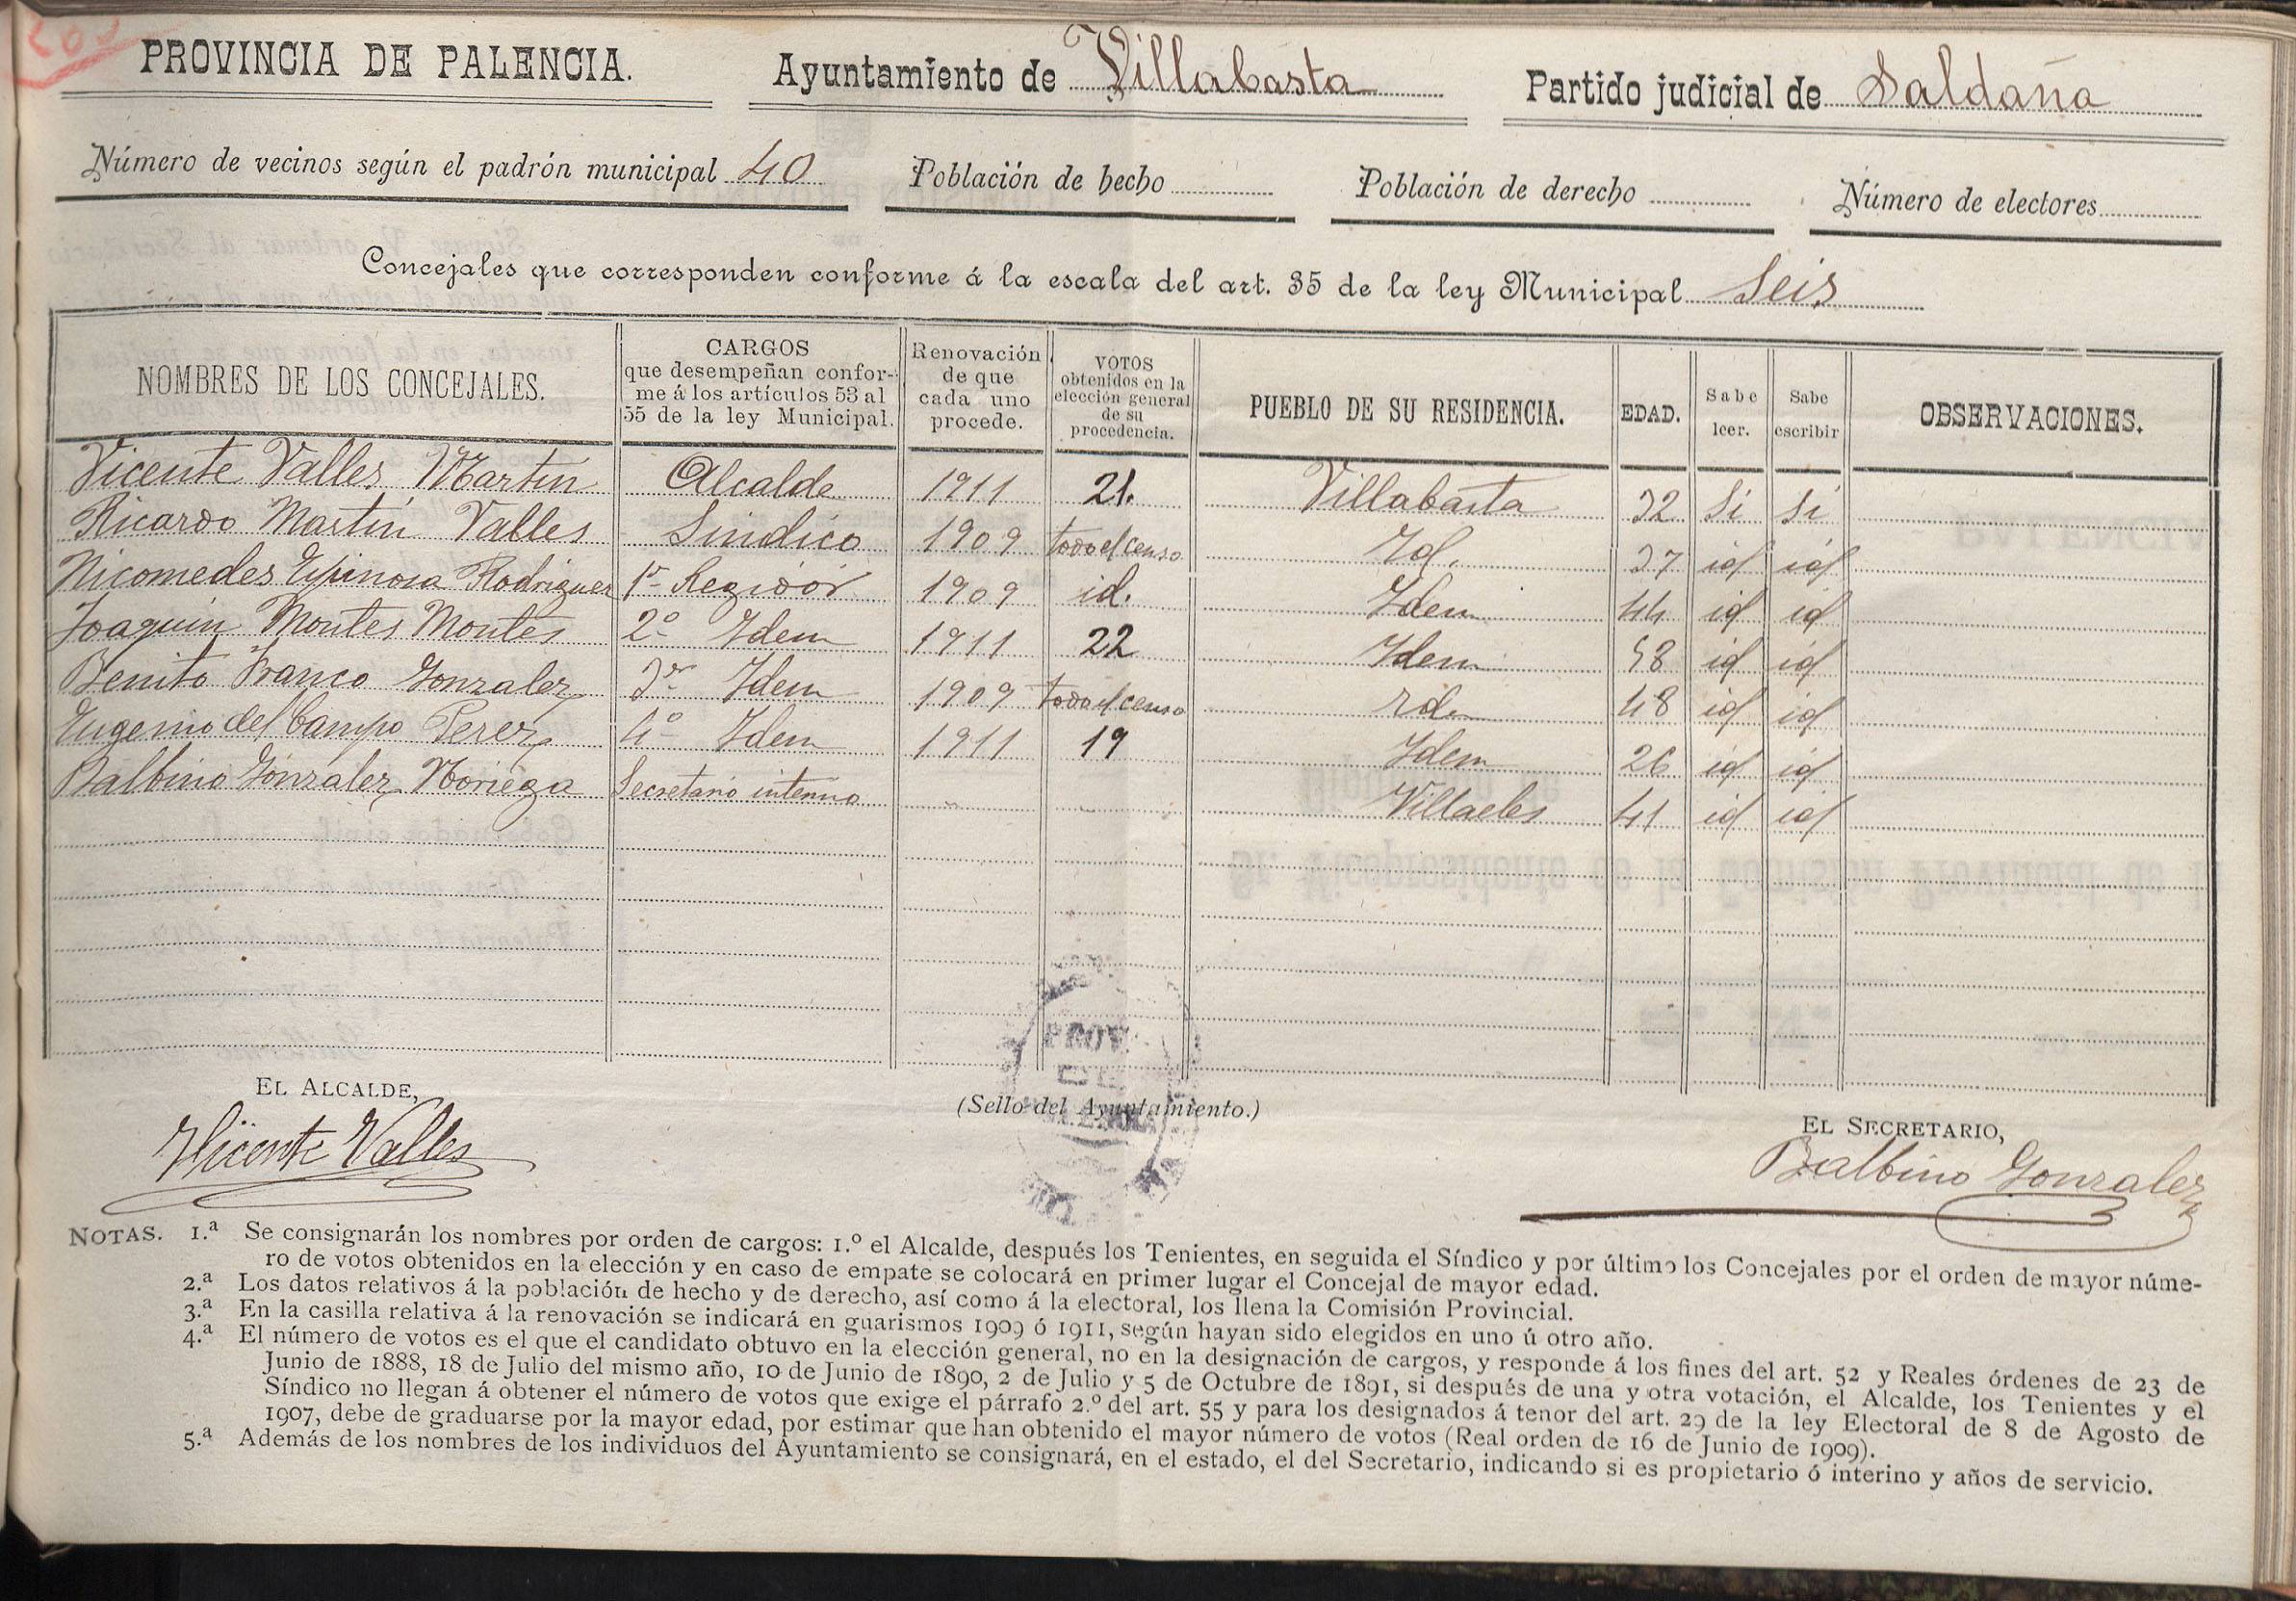 PROVINCIA DE PALENCIA. Ayuntamiento de Villabasta Partido judicial de Saldaña
Número de vecinos según el padrón municipal 40 Población de hecho Población de derecho Número de electores
Concejales que corresponden conforme á la escala del art. 35 de la ley Municipal Seis
NOMBRES DE LOS CONCEJALES. CARGOS que desempeñan conforme á los artículos 53 al 55 de la ley Municipal. Renovación de que cada uno procede. VOTOS obtenidos en la elección general de su procedencia. PUEBLO DE SU RESIDENCIA. EDAD. Sabe leer. Sabe escribir OBSERVACIONES.
Vicente Valles Martin Alcalde 1911 21. Villabasta 32 Si Si
Ricardo Martin Valles Sindico 1909 todo el censo Id. 37 id id
Nicomedes Espinosa Rodriguez 1r Regidor 1909 id. Idem 44 id id
Joaquin Montes Montes 2º Idem 1911 22 Idem 58 id id
Benito Franco Gonzalez 3r Idem 1909 todo el censo Id. 48 id id
Eugenio del Campo Perez 4º Idem 1911 19 Idem 26 id id
Balbino Gonzalez Noriega Secretario interino Villaeles 41 id id
EL ALCALDE,
Vicente Valles
(Sello del Ayuntamiento.)
PROV.
DE
EL SECRETARIO,
Balbino Gonzalez
NOTAS. 1.ª Se consignarán los nombres por orden de cargos: 1.º el Alcalde, después los Tenientes, en seguida el Síndico y por último los Concejales por el orden de mayor núme-
ro de votos obtenidos en la elección y en caso de empate se colocará en primer lugar el Concejal de mayor edad.
2.ª Los datos relativos á la población de hecho y de derecho, así como á la electoral, los llena la Comisión Provincial.
3.ª En la casilla relativa á la renovación se indicará en guarismos 1909 ó 1911, según hayan sido elegidos en uno ú otro año.
4.ª El número de votos es el que el candidato obtuvo en la elección general, no en la designación de cargos, y responde á los fines del art. 52 y Reales órdenes de 23 de
Junio de 1888, 18 de Julio del mismo año, 10 de Junio de 1890, 2 de Julio y 5 de Octubre de 1891, si después de una y otra votación, el Alcalde, los Tenientes y el
Síndico no llegan á obtener el número de votos que exige el párrafo 2.º del art. 55 y para los designados á tenor del art. 29 de la ley Electoral de 8 de Agosto de
1907, debe de graduarse por la mayor edad, por estimar que han obtenido el mayor número de votos (Real orden de 16 de Junio de 1909).
5.ª Además de los nombres de los individuos del Ayuntamiento se consignará, en el estado, el del Secretario, indicando si es propietario ó interino y años de servicio.